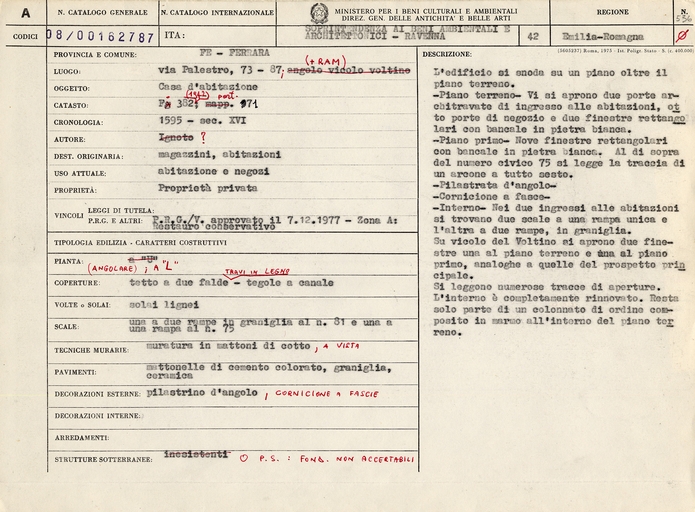 A
N. CATALOGO GENERALE
N. CATALOGO INTERNAZIONALE
MINISTERO PER I BENI CULTURALI E AMBIENTALI
DIREZ. GEN. DELLE ANTICHITA' E BELLE ARTI
REGIONE
N.
536
CODICI
08/00162787
ITA:
SOPRINTENDENZA AI BENI AMBIENTALI E
ARCHITETTONICI - RAVENNA
42
Emilia-Romagna
PROVINCIA E COMUNE: FE - FERRARA
(+ RAM)
LUOGO: via Palestro, 73 - 87; angolo vicolo voltino
OGGETTO: Casa d'abitazione
CATASTO: 382; mapp. 971
CRONOLOGIA: 1595 - sec. XVI
AUTORE: Ignoto ?
DEST. ORIGINARIA: magazzini, abitazioni
USO ATTUALE: abitazione e negozi
PROPRIETÀ: Proprietà privata
VINCOLI
LEGGI DI TUTELA:
P.R.G. E ALTRI: P.R.G./V. approvato il 7.12.1977 - Zona A:
Restauro conservativo
TIPOLOGIA EDILIZIA - CARATTERI COSTRUTTIVI
PIANTA: (ANGOLARE) ; A "L"
TRAVI IN LEGNO
COPERTURE: tetto a due falde - tegole a canale
VOLTE o SOLAI: solai lignei
SCALE: una a due rampe in graniglia al n. 81 e una a
una rampa al n. 75
TECNICHE MURARIE: muratura in mattoni di cotto, A VISTA
PAVIMENTI: mattonelle di cemento colorato, graniglia,
ceramica
DECORAZIONI ESTERNE: pilastrino d'angolo, CORNICIONE A FASCIE
DECORAZIONI INTERNE:
ARREDAMENTI:
STRUTTURE SOTTERRANEE: inesistenti P.S. : FOND. NON ACCERTABILI
(5603237) Roma, 1975 - Ist. Poligr. Stato - S. (c. 400.000)
DESCRIZIONE:
L'edificio si snoda su un piano oltre il
piano terreno.
-Piano terreno- Vi si aprono due porte ar-
chitravate di ingresso alle abitazioni, ot
to porte di negozio e due finestre rettango
lari con bancale in pietra bianca.
-Piano primo- Nove finestre rettangolari
con bancale in pietra bianca. Al di sopra
del numero civico 75 si legge la traccia di
un arcone a tutto sesto.
-Pilastrata d'angolo-
-Cornicione a fasce-
-Interno- Nei due ingressi alle abitazioni
si trovano due scale a una rampa unica e
l'altra a due rampe, in graniglia.
Su vicolo del Voltino si aprono due fine-
stre una al piano terreno e una al piano
primo, analoghe a quelle del prospetto prin
cipale.
Si leggono numerose tracce di aperture.
L'interno è completamente rinnovato. Resta
solo parte di un colonnato di ordine com-
posito in marmo all'interno del piano ter
reno.